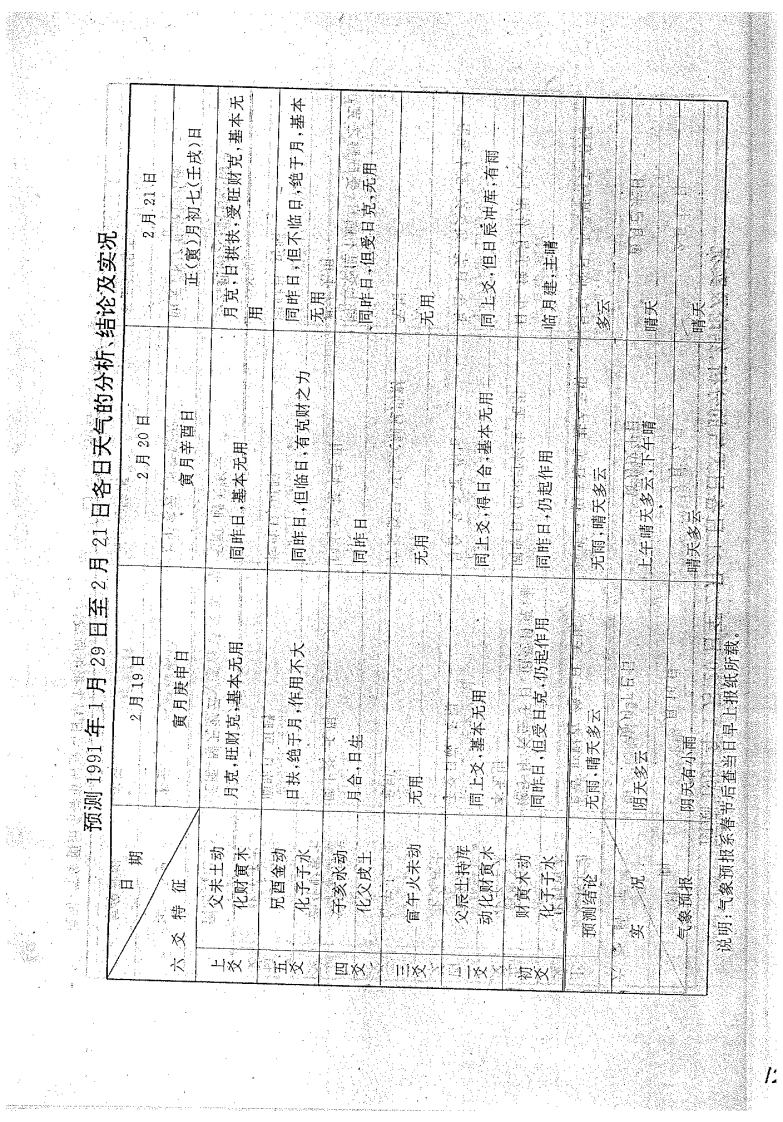 预测1991年1月29日至2月21日各日天气的分析、结论及实况
日期 2月19日 2月20日 2月21日
六爻特征 寅月庚申日 寅月辛酉日 正(寅)月初七(壬戌)日
上爻 父未土动 月克,旺财克,基本无用 同昨日,基本无用 月克,日拱扶,受旺财克,基本无
化财寅木 用
五爻 兄酉金动 日扶,绝于月,作用不大 同昨日,但临日,有克财之力 同昨日,但不临日,绝于月,基本
化子子水 无用
四爻 子亥水动 月合,日生 同昨日 同昨日,但受日克,无用
化父戌土
三爻 官午火未动 无用 无用 无用
二爻 父辰土持库 同上爻,基本无用 同上爻,得日合,基本无用 同上爻,但日辰冲库,有雨
动化财寅木
初爻 财寅木动 同昨日,但受日克,仍起作用 同昨日,仍起作用 临月建,主晴
化子子水
预测结论 无雨,晴天多云 无雨,晴天多云 多云
实况 阴天多云 上午晴天多云,下午晴 晴天
气象预报 阴天有小雨 晴天多云 晴天
说明:气象预报系春节后查当日早上报纸所载。